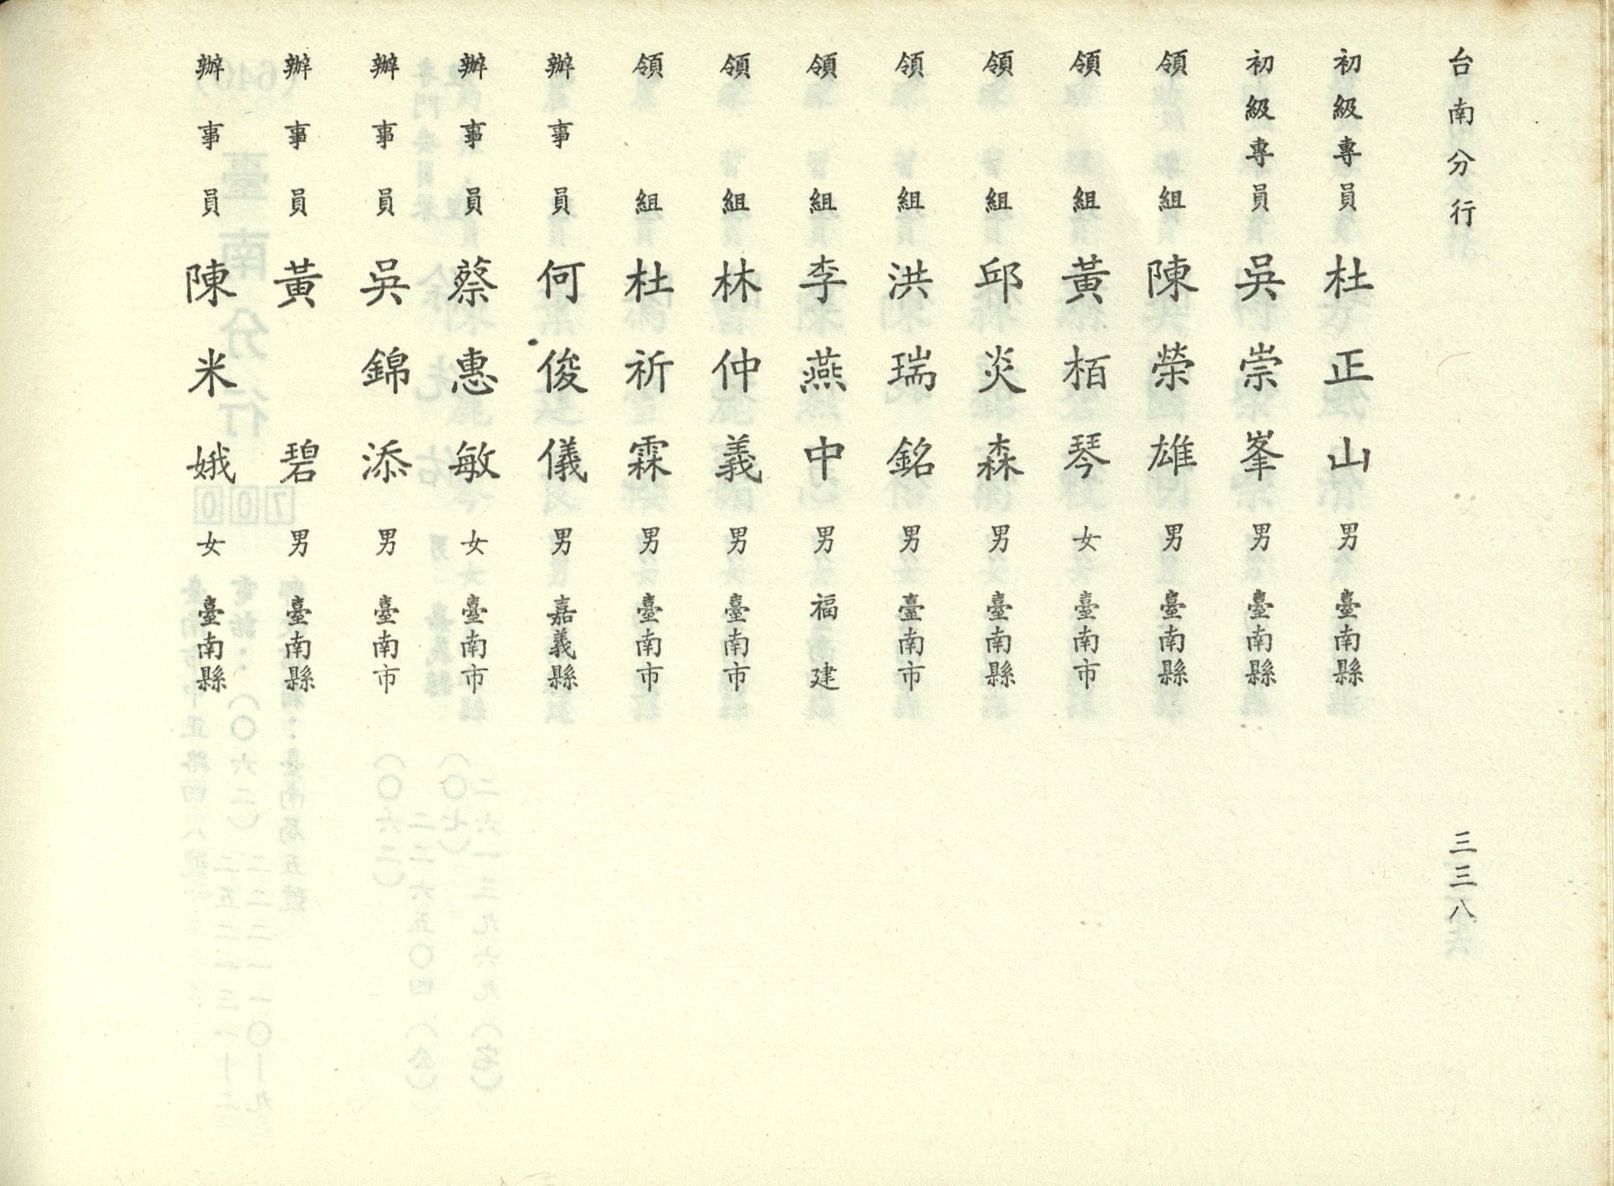 台南分行
三三八
初級專員 杜正山 男 臺南縣
初級專員 吳崇峯 男 臺南縣
領組 陳榮雄 男 臺南縣
領組 黃栢琴 女 臺南市
領組 邱炎森 男 臺南縣
領組 洪瑞銘 男 臺南市
領組 李燕中 男 福建
領組 林仲義 男 臺南市
領組 杜祈霖 男 臺南市
辦事員 何俊儀 男 嘉義縣
辦事員 蔡惠敏 女 臺南市
辦事員 吳錦添 男 臺南市
辦事員 黃碧 男 臺南縣
辦事員 陳米娥 女 臺南縣